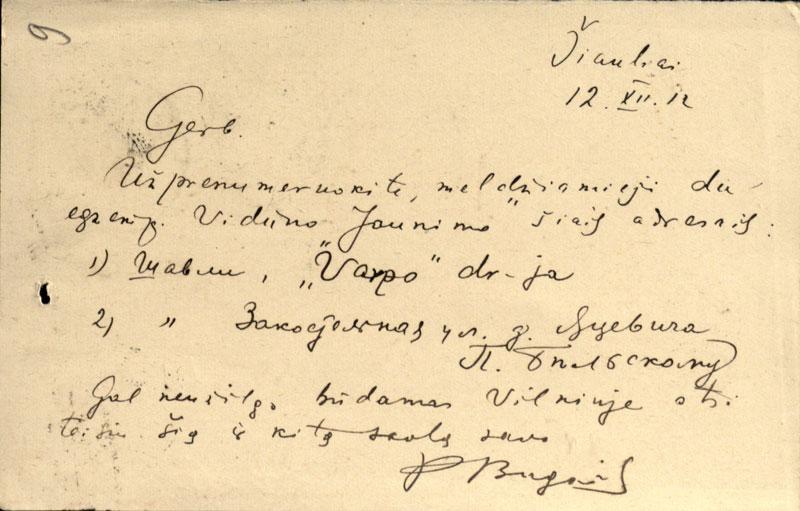 9
Šiauliai
12. XII. 12
Gerb.
Užprenumeruokite, meldžiamieji du
egzemp. Vidūno Jaunimo" šiais adresais:
1) Шавли, „Varpo" dr-ja
2) " Закостельная ул. д. Яцевича
П. Бѣльскому
Gal neužilgo, būdamas Vilniuje ati-
teisiu šią ir kitą skolą savo
P Bugail